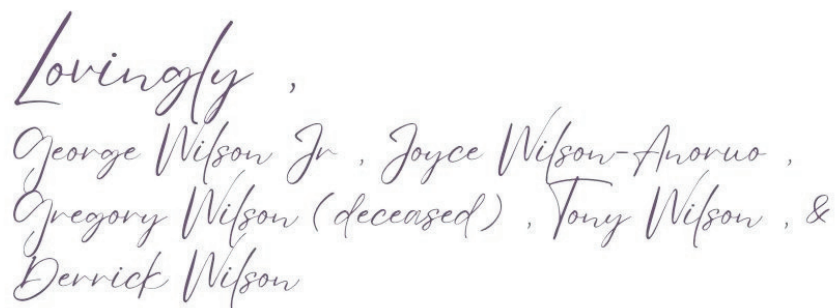 Lovingly ,
George Wilson Jr , Joyce Wilson-Anoruo ,
Gregory Wilson (deceased) , Tony Wilson , &
Derrick Wilson